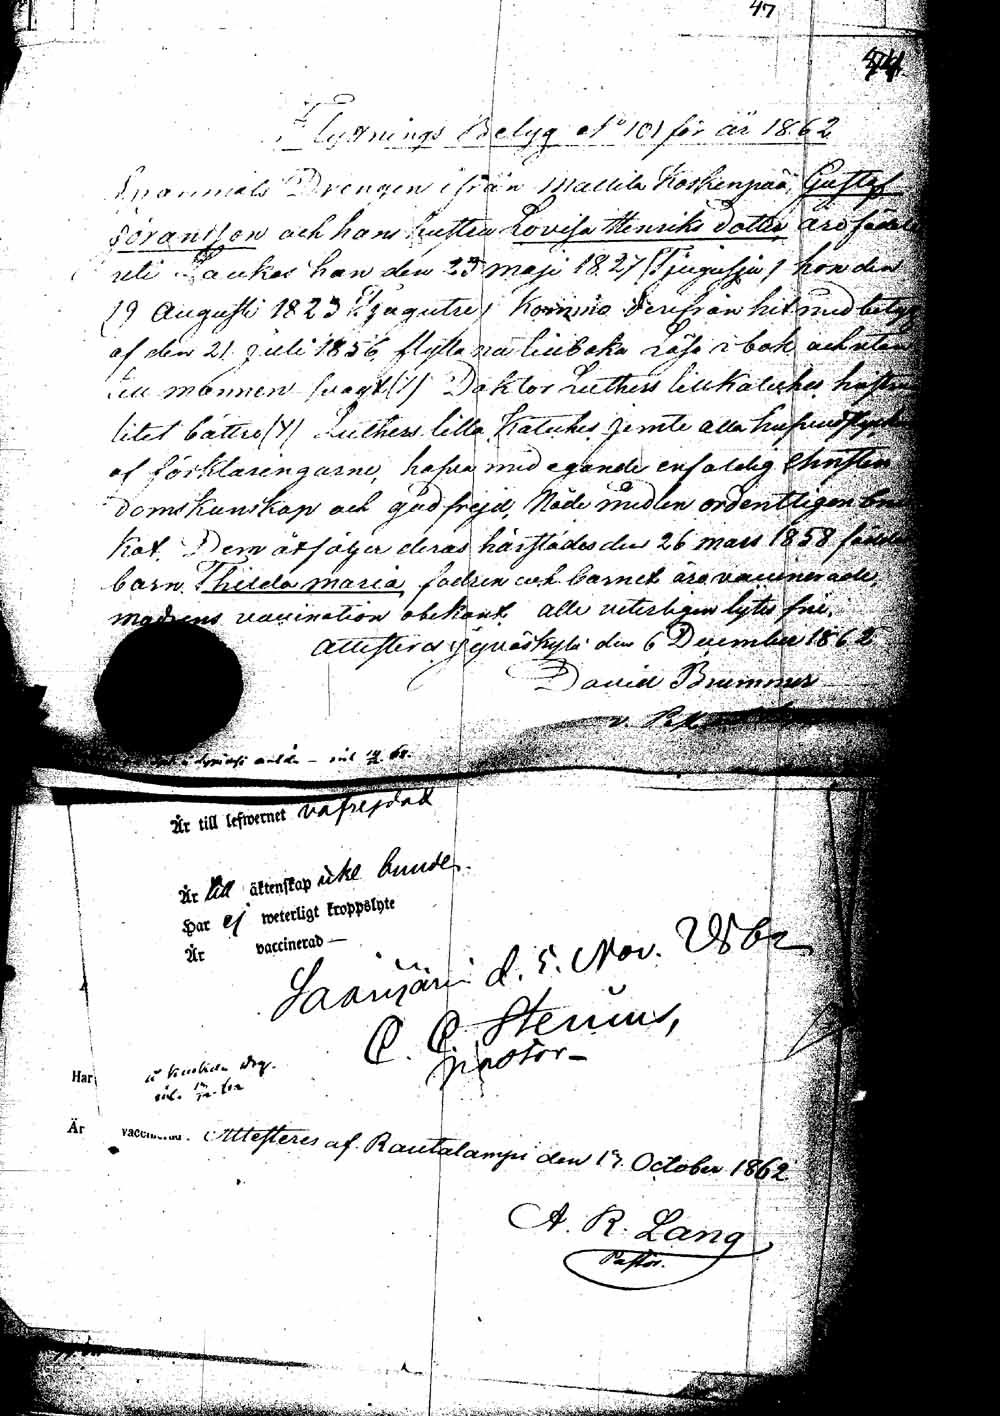 47
Flyttnings Betyg No 101 för år 1862
Drengen ifrån Mattila Koskenpää, Gustaf
Göransson och hans hustru Lovisa Henriks dotter äro födde
uti Laukas han den 27 Maji 1827 (Tjugusju) hon den
19 Augusti 1823 (Tjugutre) Komna derifrån hit med betyg
af den 21 Juli 1856, flytta nu tillbaka Läsa i bok och utan
till mannen svagt (1) Doktor Luthers lilla Kateches, hustrun
litet bättre (4) Luthers lilla Kateches jemte alla hufvudstycken
af förklaringarne, hafva med egande enfaldig Christen
doms kunskap och god frejd, Nåde medlen ordentligen bru
kat. Dem åtföljer deras härstädes den 26 Mars 1858 födda
barn Thilda Maria, fadren och barnet äro vaccinerade,
modrens vaccination obekant alla veterligen lytes fria,
Attesteras Jyväskylä den 6 December 1862
David Brummer
v. Past.
Är till lefwernet välfrejdad
Är till äktenskap icke bunden.
Har ej weterligt kroppslyte
Är vaccinerad —
Saarijärvi d. 5. Nov. 1862
C. C. Stenius,
pastor —
Har
Är vaccinerad. Attesteres af Rautalampi den 17 October 1862
A. R. Lang
Pastor.